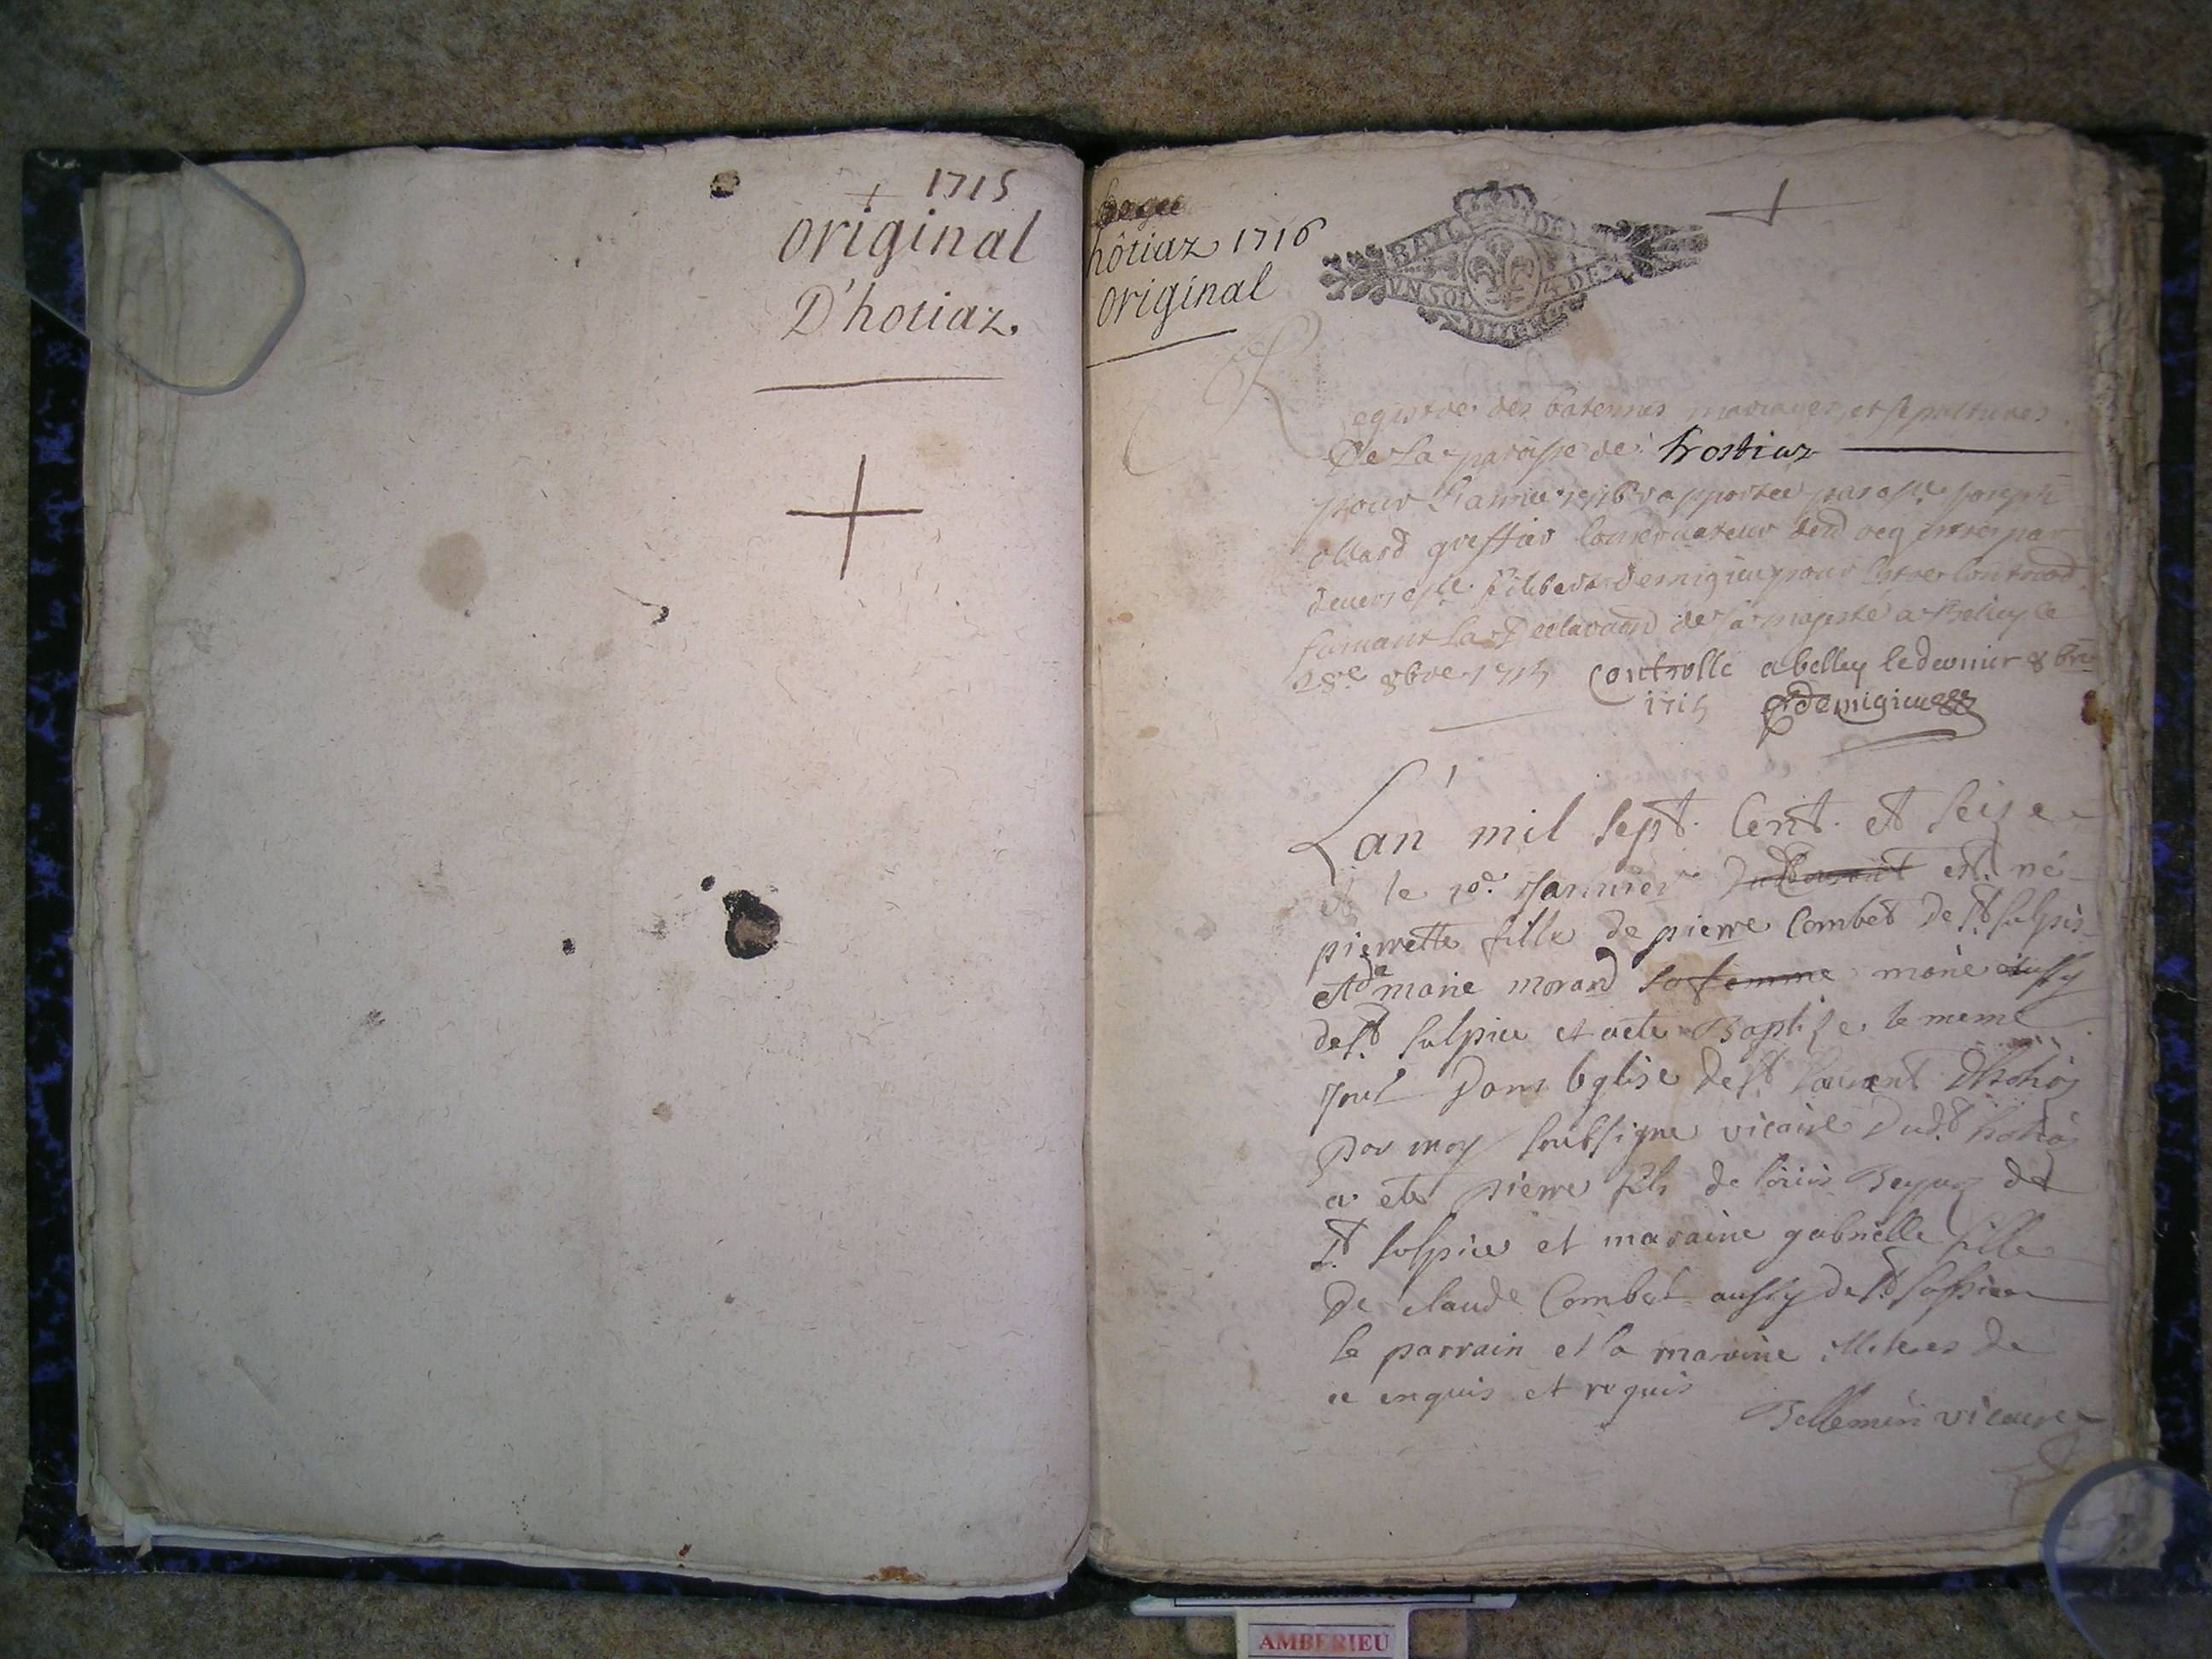 1715
original
D'hotiaz.
hôtiaz 1716
original
BAIL DE
UN SOL 4 DE
Registre des batemes mariages et sepultures
De la paroisse de hostiaz
pour l'annee 1716 rapportee par Joseph
greffier conservateur des registres par
devers filibert Demigieu pour estre controllé
suivant la Declaraon de sa majesté a Belley le
28e 8bre 1715 Controlle a belley le dernier 8bre
1715 Demigieu
Lan mil sept Cent et seize
et le janvier est né
pierrette fille de pierre Combet de St sulpis
et de marie morand sa femme aussy
de St sulpice et a ete Baptize le meme
jour Dans leglise de St laurent Dhotias
par moy soubsigne vicaire Dudt hotias
a ete pierre fils de de
St sulpice et maraine gabrielle fille
De claude Combet aussy de St
le parrain et la maraine illiteres de
ce enquis et requis
Bellemin vicaire
AMBERIEU